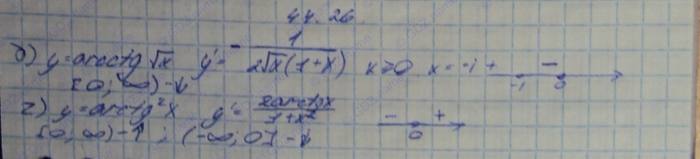 44.26
б) y=arcctg √x y' = - 1/(2√x(1+x)) x>0 x=-1 + - -1 0
[0; ∞) - ↓
г) y=arctg²x y' = 2arctgx/(1+x²) - + 0
[0; ∞) - ↑ ; (-∞; 0] - ↓